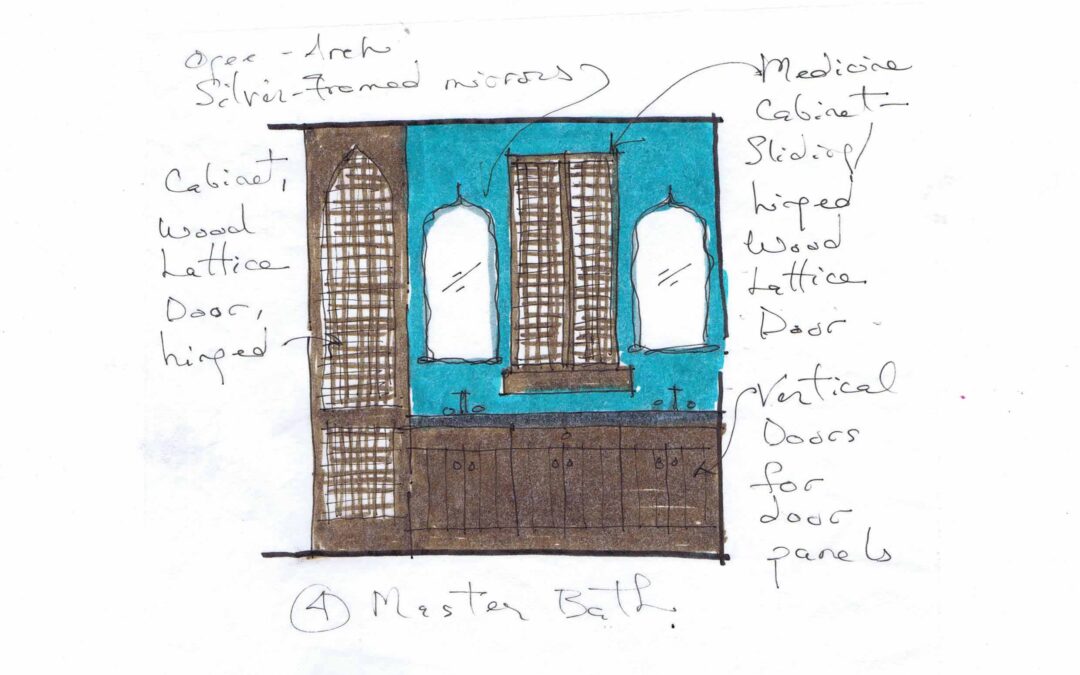 Ogee - Arch
Silver-Framed mirrors
Medicine
Cabinet -
Sliding /
hinged
Wood
Lattice
Door
Cabinet,
Wood
Lattice
Door,
hinged
Vertical
Doors
for
door
panels
4 Master Bath